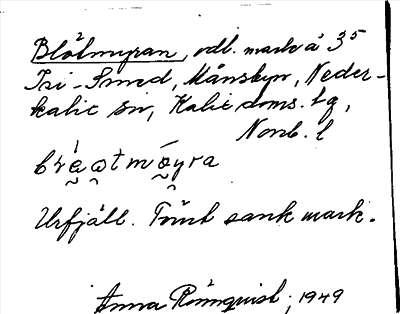 Blötmyran, odl. mark å 35
Tri-Smed, Månsbyn, Neder-
kalix sn, Kalix doms. tg,
Norrb. l
Urfjäll. Tömt sank mark.
Anna Rönnquist, 1949